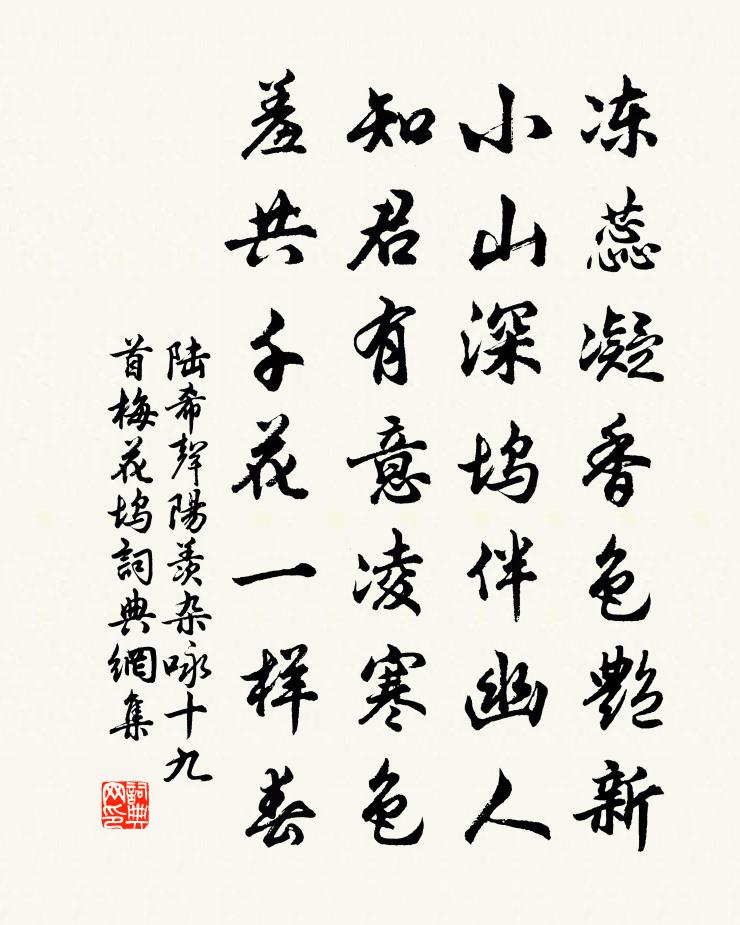 冻蕊凝香色艳新
小山深坞伴幽人
知君有意凌寒色
羞共千花一样春
陆希聲陽羡杂咏十九
首梅花坞詞典網集
詞典
网印